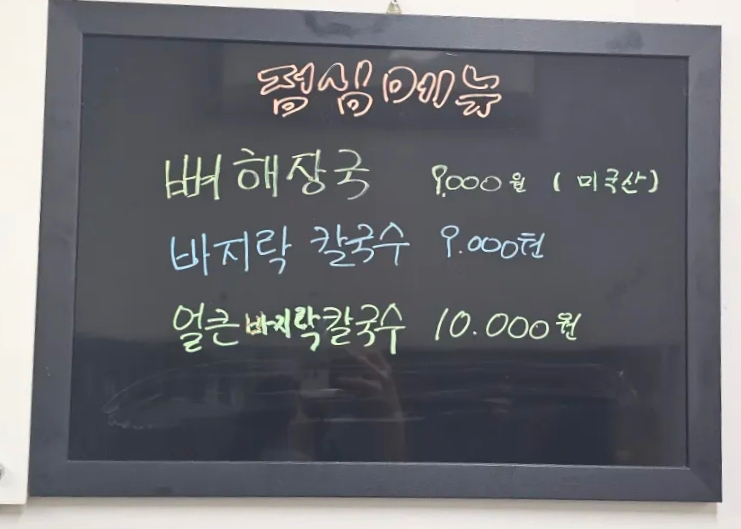 점심메뉴
뼈해장국 9.000원 (미국산)
바지락 칼국수 9.000원
얼큰바지락칼국수 10.000원